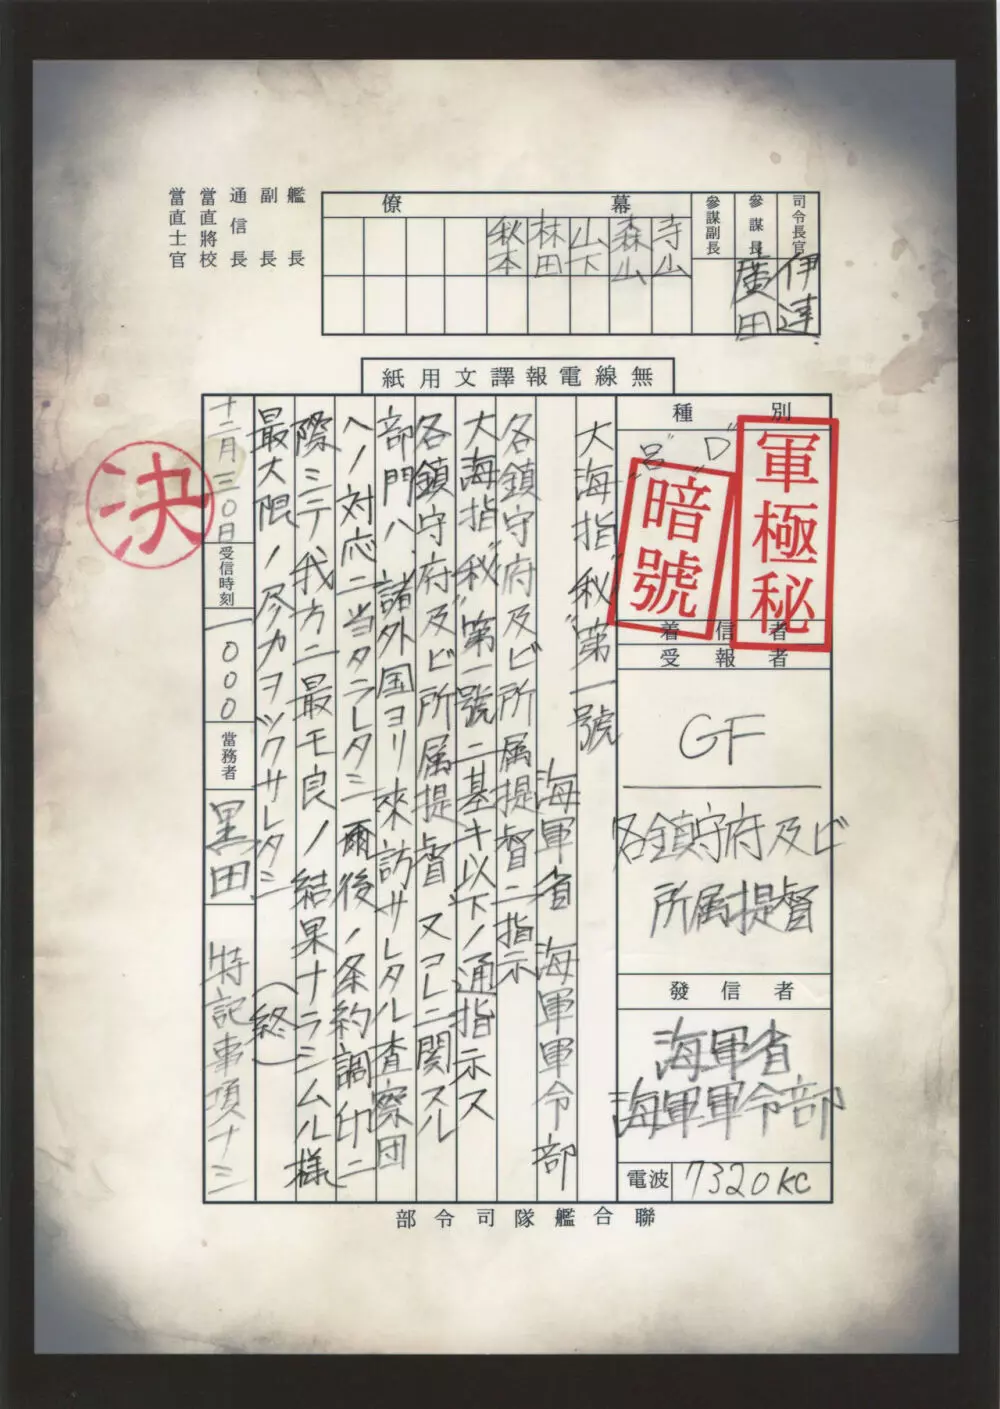 司令長官
伊達
參謀長
廣田
參謀副長
幕僚
寺山
森山
山下
林田
秋本
艦長
副長
通信長
當直將校
當直士官
無線電報譯文用紙
種別
軍極秘
"D"
"呂"
暗號
着信者
受報者
GF
各鎮守府及ビ
所属提督
發信者
海軍省
海軍軍令部
電波
7320KC
大海指"秘"第一號
海軍省 海軍軍令部
各鎮守府及ビ所属提督ニ指示
大海指"秘"第一號ニ基キ以下ノ通指示ス
各鎮守府及ビ所属提督、又コレニ関スル
部門ハ、諸外国ヨリ來訪サレタル査察団
ヘノ対応ニ当タラレタシ 爾後ノ条約調印ニ
際シテ我方ニ最モ良ノ結果ナラシムル様
最大限ノ尽力ヲツクサレタシ (終)
十二月三〇日
受信時刻
一〇〇〇
當務者
黒田
特記事項ナシ
決
聯合艦隊司令部